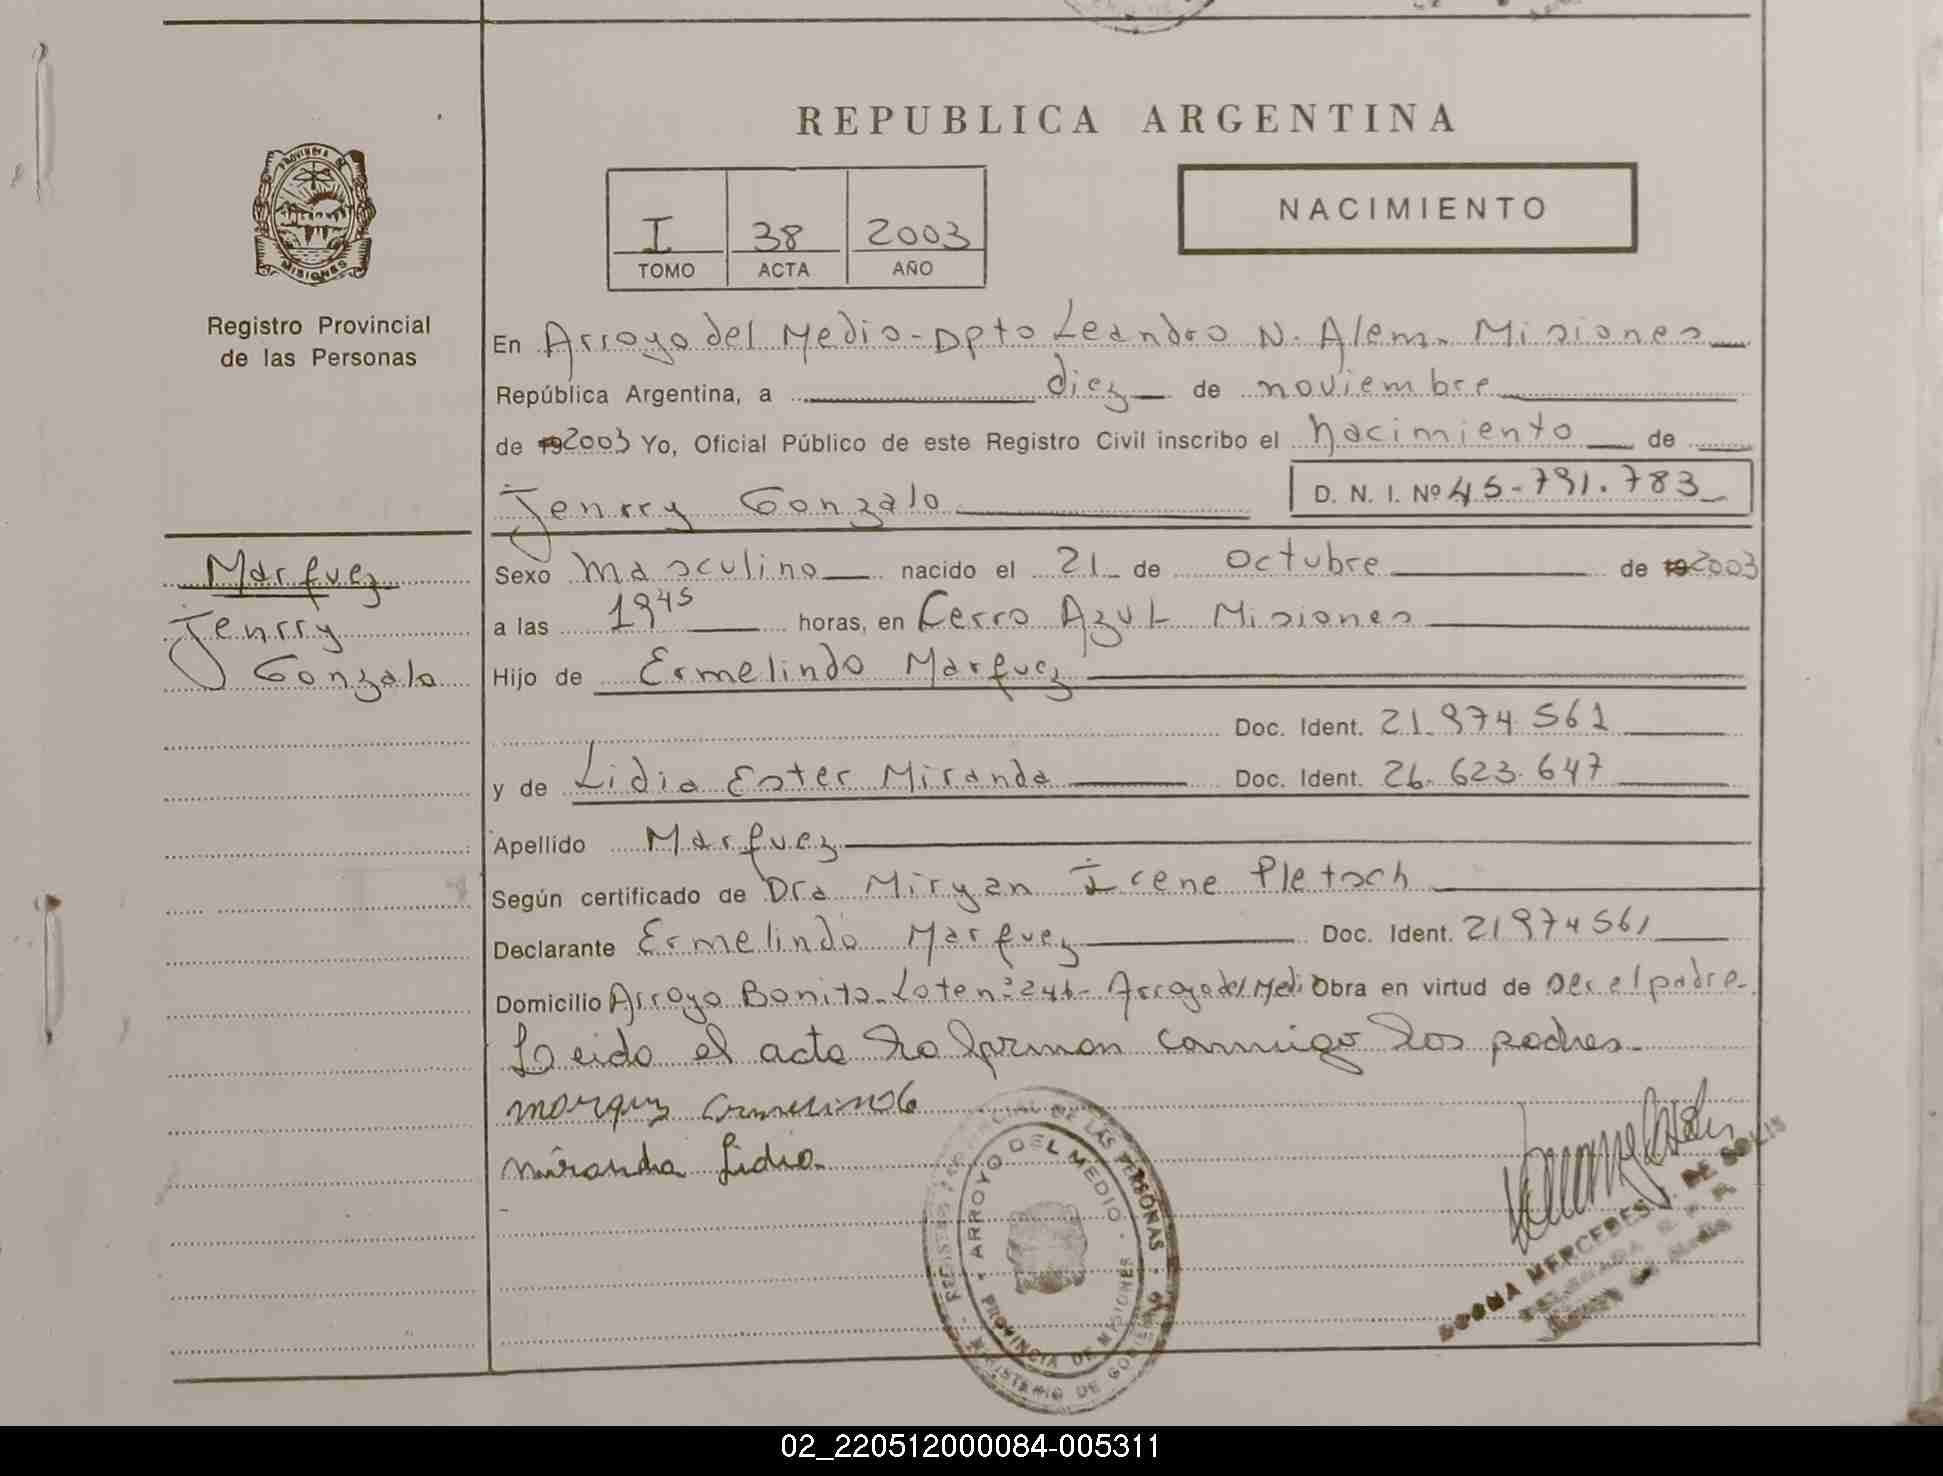 REPUBLICA ARGENTINA
PROVINCIA DE
MISIONES
Registro Provincial
de las Personas
I 38 2003
TOMO ACTA AÑO
NACIMIENTO
En Arroyo del Medio - Dpto Leandro N. Alem. Misiones
República Argentina, a diez de noviembre
de 19 2003 Yo, Oficial Público de este Registro Civil inscribo el nacimiento de
Jenrry Gonzalo D. N. I. Nº 45-791.783
Marquez
Jenrry
Gonzalo
Sexo Masculino nacido el 21 de Octubre de 19 2003
a las 19 45 horas, en Cerro Azul Misiones
Hijo de Ermelindo Marquez
Doc. Ident. 21.974.561
y de Lidia Ester Miranda Doc. Ident. 26.623.647
Apellido Marquez
Según certificado de Dra Miryan Irene Pletsch
Declarante Ermelindo Marquez Doc. Ident. 21974561
Domicilio Arroyo Bonito - Lote nº 246 - Arroyo del Medi Obra en virtud de ser el padre
Leida el acta la firman conmigo los padres.
marquez
miranda Lidia
REGISTRO PROVINCIAL DE LAS PERSONAS
MINISTERIO DE GOBIERNO
ARROYO DEL MEDIO
PROVINCIA DE MISIONES
MERCEDES J. DE SOLIS
02_220512000084-005311